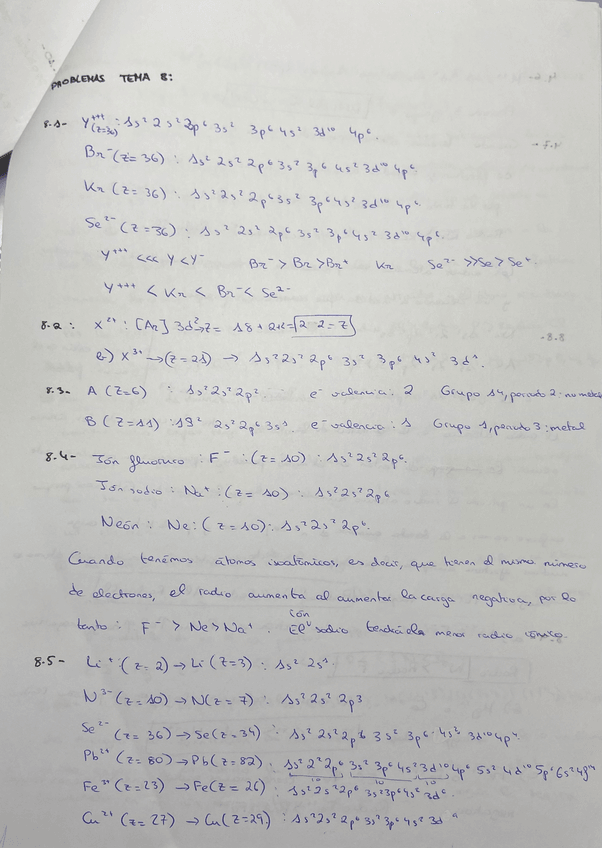 PROBLEMAS TEMA 8:
8.1- Y⁺⁺⁺ (z=36) : 1s² 2s² 2p⁶ 3s² 3p⁶ 4s² 3d¹⁰ 4p⁶.
Br⁻ (z=36) : 1s² 2s² 2p⁶ 3s² 3p⁶ 4s² 3d¹⁰ 4p⁶
Kr (z=36) : 1s² 2s² 2p⁶ 3s² 3p⁶ 4s² 3d¹⁰ 4p⁶
Se²⁻ (z=36) : 1s² 2s² 2p⁶ 3s² 3p⁶ 4s² 3d¹⁰ 4p⁶.
Y⁺⁺⁺ <<< Y < Y⁻ Br⁻ > Br > Br⁺ Kr Se²⁻ >> Se > Se⁺.
Y⁺⁺⁺ < Kr < Br⁻ < Se²⁻
8.2: X²⁺ : [Ar] 3d² → z = 18+2+2= 22=z
X³⁺ → (z=21) → 1s² 2s² 2p⁶ 3s² 3p⁶ 4s² 3d¹.
8.3- A (z=6) : 1s² 2s² 2p². e⁻ valencia: 2 Grupo 14, periodo 2: no metal
B (z=11) : 1s² 2s² 2p⁶ 3s¹. e⁻ valencia: 1 Grupo 1, periodo 3: metal
8.4- Ión fluoruro : F⁻ : (z=10) : 1s² 2s² 2p⁶.
Ión sodio : Na⁺ : (z=10) : 1s² 2s² 2p⁶
Neón : Ne : (z=10) : 1s² 2s² 2p⁶.
Cuando tenemos átomos isoatómicos, es decir, que tienen el mismo número
de electrones, el radio aumenta al aumentar la carga negativa, por lo
tanto : F⁻ > Ne > Na⁺. El ión sodio tendrá el menor radio iónico.
8.5- Li⁺ (z=2) → Li (z=3) : 1s² 2s¹.
N³⁻ (z=10) → N (z=7) : 1s² 2s² 2p³
Se²⁻ (z=36) → Se (z=34) : 1s² 2s² 2p⁶ 3s² 3p⁶ 4s² 3d¹⁰ 4p⁴.
Pb²⁺ (z=80) → Pb (z=82) : 1s² 2² 2p⁶ 3s² 3p⁶ 4s² 3d¹⁰ 4p⁶ 5s² 4d¹⁰ 5p⁶ 6s² 4f¹⁴
10 10 10
Fe³⁺ (z=23) → Fe (z=26) : 1s² 2s² 2p⁶ 3s² 3p⁶ 4s² 3d⁶.
Cu²⁺ (z=27) → Cu (z=29) : 1s² 2s² 2p⁶ 3s² 3p⁶ 4s² 3d⁹